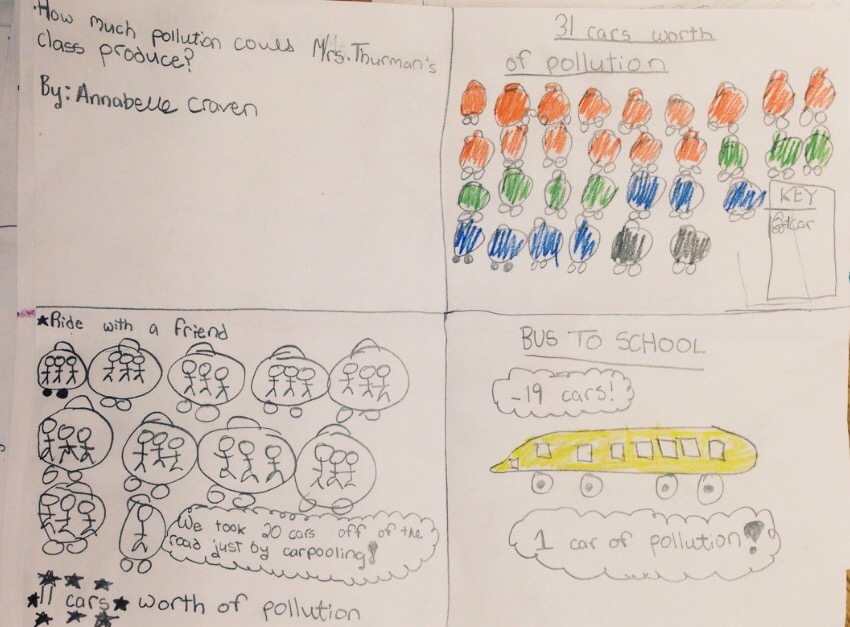 How much pollution could Mrs. Thurman's
class produce?
By: Annabelle Craven
31 cars worth
of pollution
KEY
car
Ride with a friend
We took 20 cars off of the
road just by carpooling!
11 cars worth of pollution
BUS TO SCHOOL
-19 cars!
1 car of pollution!